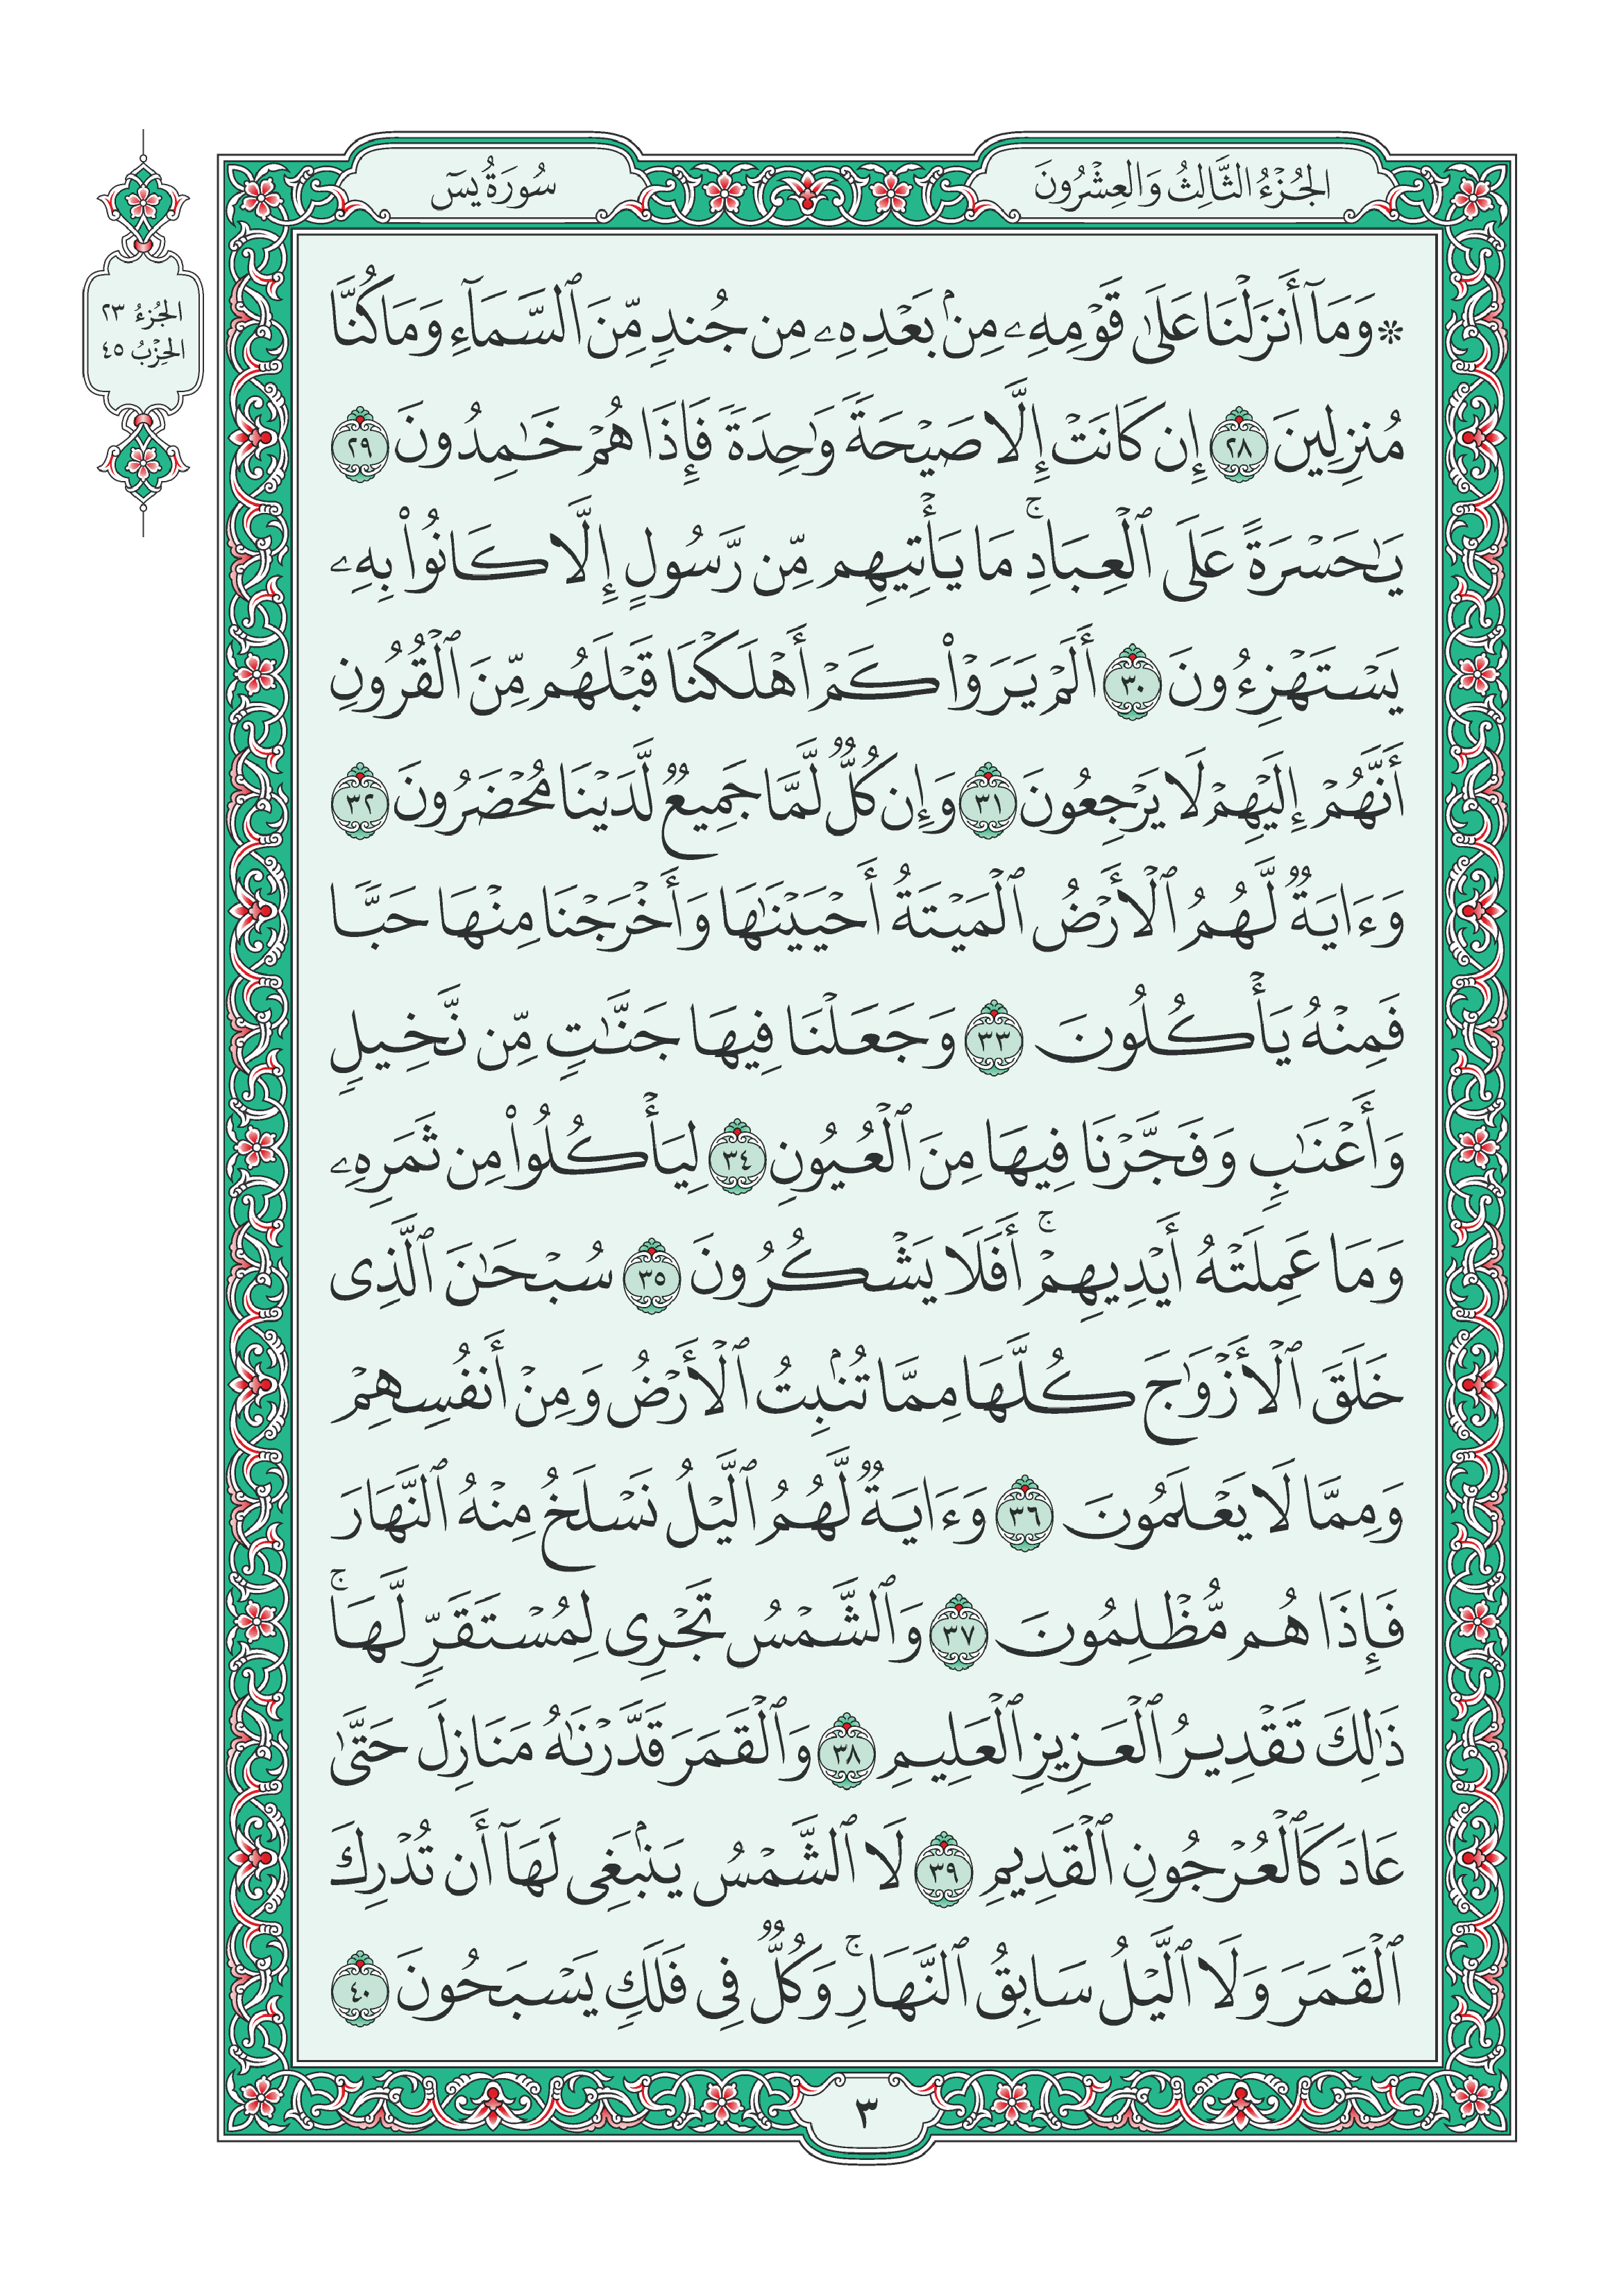 الجُزْءُ الثَّالِثُ وَالعِشْرُونَ
سُورَةُ يسٓ
الجُزءُ ٢٣
الحِزْبُ ٤٥
۞وَمَآ أَنزَلْنَا عَلَىٰ قَوْمِهِۦ مِنۢ بَعْدِهِۦ مِن جُندٍ مِّنَ ٱلسَّمَآءِ وَمَا كُنَّا
مُنزِلِينَ ٢٨ إِن كَانَتْ إِلَّا صَيْحَةً وَٰحِدَةً فَإِذَا هُمْ خَٰمِدُونَ ٢٩
يَٰحَسْرَةً عَلَى ٱلْعِبَادِۚ مَا يَأْتِيهِم مِّن رَّسُولٍ إِلَّا كَانُوا۟ بِهِۦ
يَسْتَهْزِءُونَ ٣٠ أَلَمْ يَرَوْا۟ كَمْ أَهْلَكْنَا قَبْلَهُم مِّنَ ٱلْقُرُونِ
أَنَّهُمْ إِلَيْهِمْ لَا يَرْجِعُونَ ٣١ وَإِن كُلٌّ لَّمَّا جَمِيعٌ لَّدَيْنَا مُحْضَرُونَ ٣٢
وَءَايَةٌ لَّهُمُ ٱلْأَرْضُ ٱلْمَيْتَةُ أَحْيَيْنَٰهَا وَأَخْرَجْنَا مِنْهَا حَبًّا
فَمِنْهُ يَأْكُلُونَ ٣٣ وَجَعَلْنَا فِيهَا جَنَّٰتٍ مِّن نَّخِيلٍ
وَأَعْنَٰبٍ وَفَجَّرْنَا فِيهَا مِنَ ٱلْعُيُونِ ٣٤ لِيَأْكُلُوا۟ مِن ثَمَرِهِۦ
وَمَا عَمِلَتْهُ أَيْدِيهِمْۚ أَفَلَا يَشْكُرُونَ ٣٥ سُبْحَٰنَ ٱلَّذِى
خَلَقَ ٱلْأَزْوَٰجَ كُلَّهَا مِمَّا تُنۢبِتُ ٱلْأَرْضُ وَمِنْ أَنفُسِهِمْ
وَمِمَّا لَا يَعْلَمُونَ ٣٦ وَءَايَةٌ لَّهُمُ ٱلَّيْلُ نَسْلَخُ مِنْهُ ٱلنَّهَارَ
فَإِذَا هُم مُّظْلِمُونَ ٣٧ وَٱلشَّمْسُ تَجْرِى لِمُسْتَقَرٍّ لَّهَاۚ
ذَٰلِكَ تَقْدِيرُ ٱلْعَزِيزِ ٱلْعَلِيمِ ٣٨ وَٱلْقَمَرَ قَدَّرْنَٰهُ مَنَازِلَ حَتَّىٰ
عَادَ كَٱلْعُرْجُونِ ٱلْقَدِيمِ ٣٩ لَا ٱلشَّمْسُ يَنۢبَغِى لَهَآ أَن تُدْرِكَ
ٱلْقَمَرَ وَلَا ٱلَّيْلُ سَابِقُ ٱلنَّهَارِۚ وَكُلٌّ فِى فَلَكٍ يَسْبَحُونَ ٤٠
٣